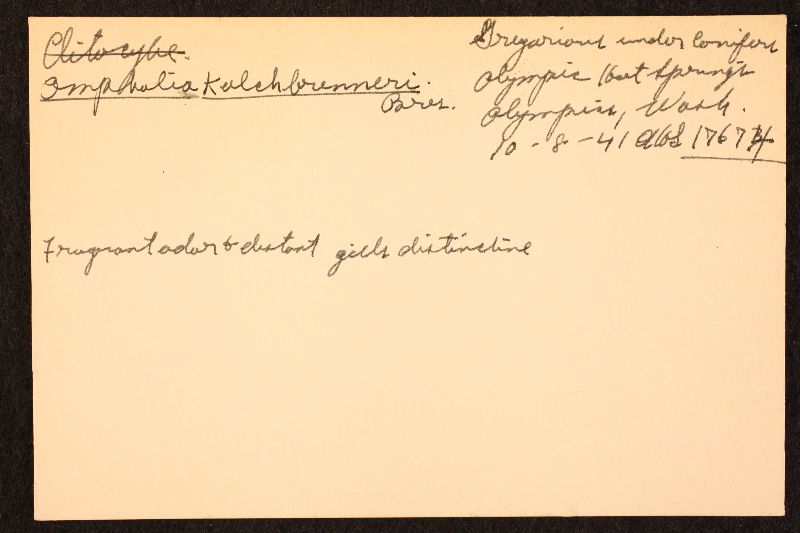 Clitocybe.
Omphalia Kalchbrenneri.
Bres.
Gregarious under conifers
Olympic Hot Springs
Olympics, Wash.
10-8-41 AHS 17674
Fragrant odor & distant gills distinctive